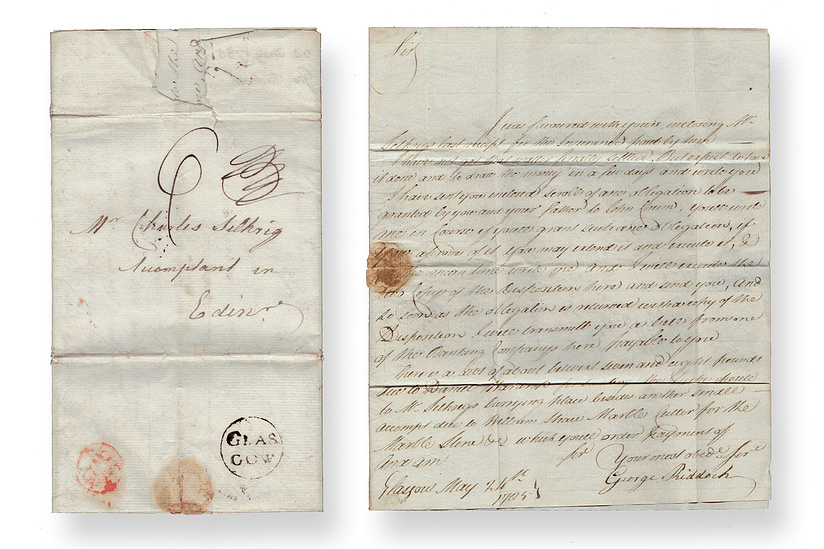 6
Mr Charles Selkrig
Accomptant in
Edinr
GLAS
GOW
Sir
I was favoured with yours, inclosing Mr
Selkrigs last receipt for the Insurance paid by him
I have not as yet but expect to have
it done and to draw the money in a few days and write you
I have sent you inclosed scroll of an obligation to be
granted by you and your father to John you'll write
me in course if you're to grant such an obligation, if
you approve of it you may extend it and execute it, &
time write me and I will execute the
Copy of the Disposition here and send you, and
so soon as the obligation is returned with a copy of the
Disposition I will transmit you a bill from one
of the Banking Companys here payable to you
There is a Acct of about betwixt seven and eight pounds
due to David for the
to Mr Selkrigs burrying place besides another small
accompt due to William Shaw Marble Cutter for the
Marble Stone &c which you'll order payment of
And am Sir Your most obedt Servt
Glasgow May 24th George Riddoch
1785